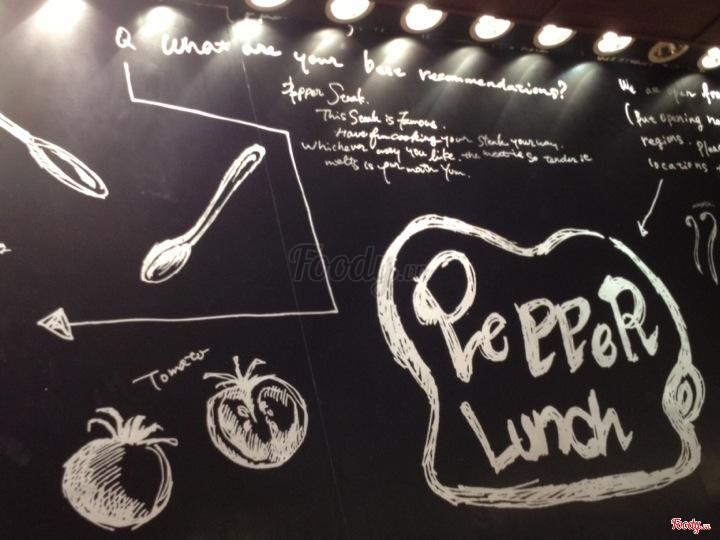 Q What are your best recommendations?
Pepper Steak.
This Steak is Famous.
Have fun cooking your steak your way.
Whichever way you like. the meat is so tender it
melts in your mouth Yum.
We are open from
(But opening
regions. Please
locations
Tomato
PePPeR
Lunch
Foody.vn
Foody.vn